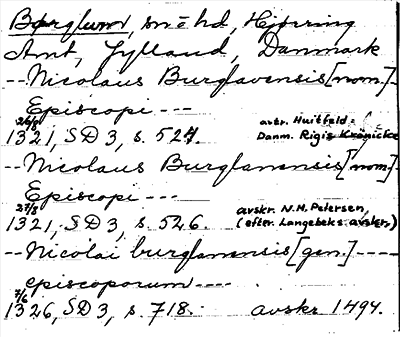 Børglum, sn o hd, Hjørring
Amt, Jylland, Danmark
-- Nicolaus Burglavensis [nom.] -
Episcopi ---
26/8
1321, SD 3, s. 524. avtr. Huitfeld =
Danm. Rigis Krønicke
-- Nicolaus Burglanensis [nom]-
Episcopi ---
27/8
1321, SD 3, s. 526. avskr. N. M. Petersen,
(eftr. Langebeks avskr.)
-- Nicolai burglanensis [gen.] ----
episcoporum ----
7/6
1326, SD 3, s. 718. avskr. 1494.